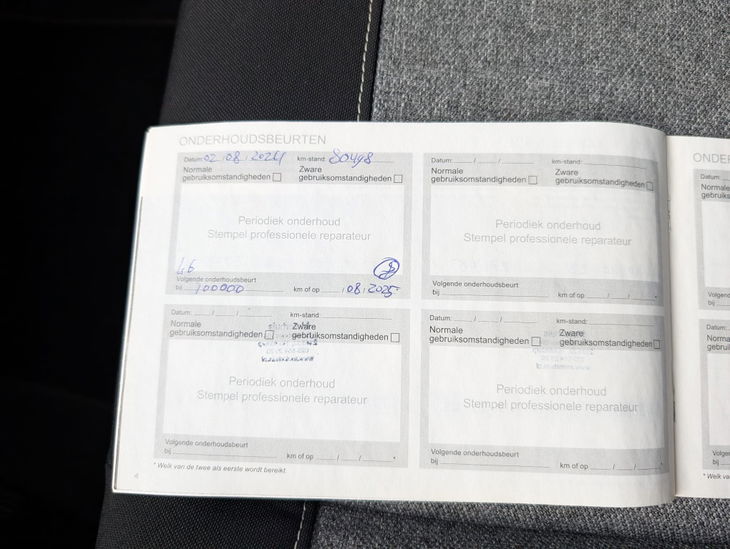 ONDERHOUDSBEURTEN
Datum: 02/08/2024 km-stand: 80498
Normale gebruiksomstandigheden
Zware gebruiksomstandigheden
Periodiek onderhoud
Stempel professionele reparateur
Volgende onderhoudsbeurt
bij 100000 km of op /08/2025
Datum: / / km-stand:
Normale gebruiksomstandigheden
Zware gebruiksomstandigheden
Periodiek onderhoud
Stempel professionele reparateur
Volgende onderhoudsbeurt
bij km of op / / *
Datum: / / km-stand:
Normale gebruiksomstandigheden
Zware gebruiksomstandigheden
Periodiek onderhoud
Stempel professionele reparateur
Volgende onderhoudsbeurt
bij km of op / / *
Datum: / / km-stand:
Normale gebruiksomstandigheden
Zware gebruiksomstandigheden
Periodiek onderhoud
Stempel professionele reparateur
Volgende onderhoudsbeurt
bij km of op / / *
* Welk van de twee als eerste wordt bereikt.
4
ONDER
Datum:
Norma
gebruiks
Volgend
bij
Datum:
Norma
gebruik
Volgen
bij
* Welk v